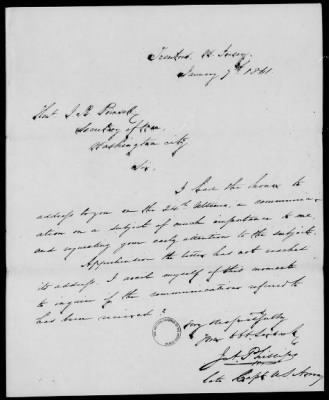 Trenton N. Jersey.
January 7th 1841.
Hon'l J. R. Poinsett,
Secretary of War
Washington City
Sir.
I had the honor to
address to you on the 24th Ultimo, a communica-
ation on a subject of much importance to me,
and requesting your early attention to the subject.
Apprehensive the letter has not reached
its address. I avail myself of this moment
to inquire if the communication referred to
has been received?
Very respectfully
Your Obt Servt
Phillips
late Capt U.S. Army